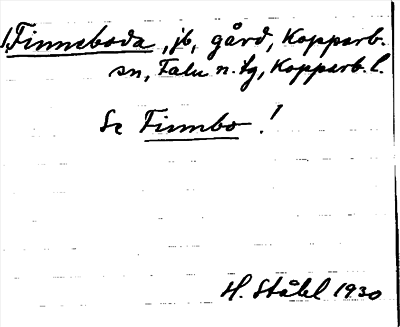 1. Finneboda, jb, gård, Kopparb.
sn, Falu n. tg, Kopparb. l.
Se Finnbo!
H. Ståhl 1930